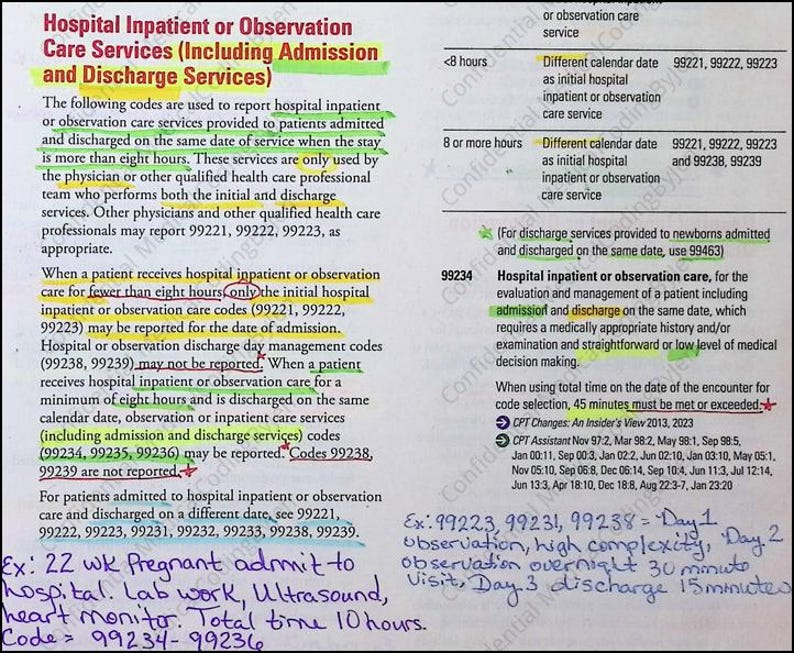 Hospital Inpatient or Observation
Care Services (Including Admission
and Discharge Services)
The following codes are used to report hospital inpatient
or observation care services provided to patients admitted
and discharged on the same date of service when the stay
is more than eight hours. These services are only used by
the physician or other qualified health care professional
team who performs both the initial and discharge
services. Other physicians and other qualified health care
professionals may report 99221, 99222, 99223, as
appropriate.
When a patient receives hospital inpatient or observation
care for fewer than eight hours, only the initial hospital
inpatient or observation care codes (99221, 99222,
99223) may be reported for the date of admission.
Hospital or observation discharge day management codes
(99238, 99239) may not be reported. When a patient
receives hospital inpatient or observation care for a
minimum of eight hours and is discharged on the same
calendar date, observation or inpatient care services
(including admission and discharge services) codes
(99234, 99235, 99236) may be reported. Codes 99238,
99239 are not reported.
For patients admitted to hospital inpatient or observation
care and discharged on a different date, see 99221,
99222, 99223, 99231, 99232, 99233, 99238, 99239.
Ex: 22 wk Pregnant admit to
hospital. Lab work, Ultrasound,
heart monitor. Total time 10 hours.
Code = 99234-99236
or observation care
service
<8 hours Different calendar date 99221, 99222, 99223
as initial hospital
inpatient or observation
care service
8 or more hours Different calendar date 99221, 99222, 99223
as initial hospital and 99238, 99239
inpatient or observation
care service
(For discharge services provided to newborns admitted
and discharged on the same date, use 99463)
99234 Hospital inpatient or observation care, for the
evaluation and management of a patient including
admission and discharge on the same date, which
requires a medically appropriate history and/or
examination and straightforward or low level of medical
decision making.
When using total time on the date of the encounter for
code selection, 45 minutes must be met or exceeded.
CPT Changes: An Insider's View 2013, 2023
CPT Assistant Nov 97:2, Mar 98:2, May 98:1, Sep 98:5,
Jan 00:11, Sep 00:3, Jan 02:2, Jun 02:10, Jan 03:10, May 05:1,
Nov 05:10, Sep 06:8, Dec 06:14, Sep 10:4, Jun 11:3, Jul 12:14,
Jun 13:3, Apr 18:10, Dec 18:8, Aug 22:3-7, Jan 23:20
Ex: 99223, 99231, 99238 = Day 1
observation, high complexity, Day 2
observation overnight 30 minute
visit, Day 3 discharge 15 minutes